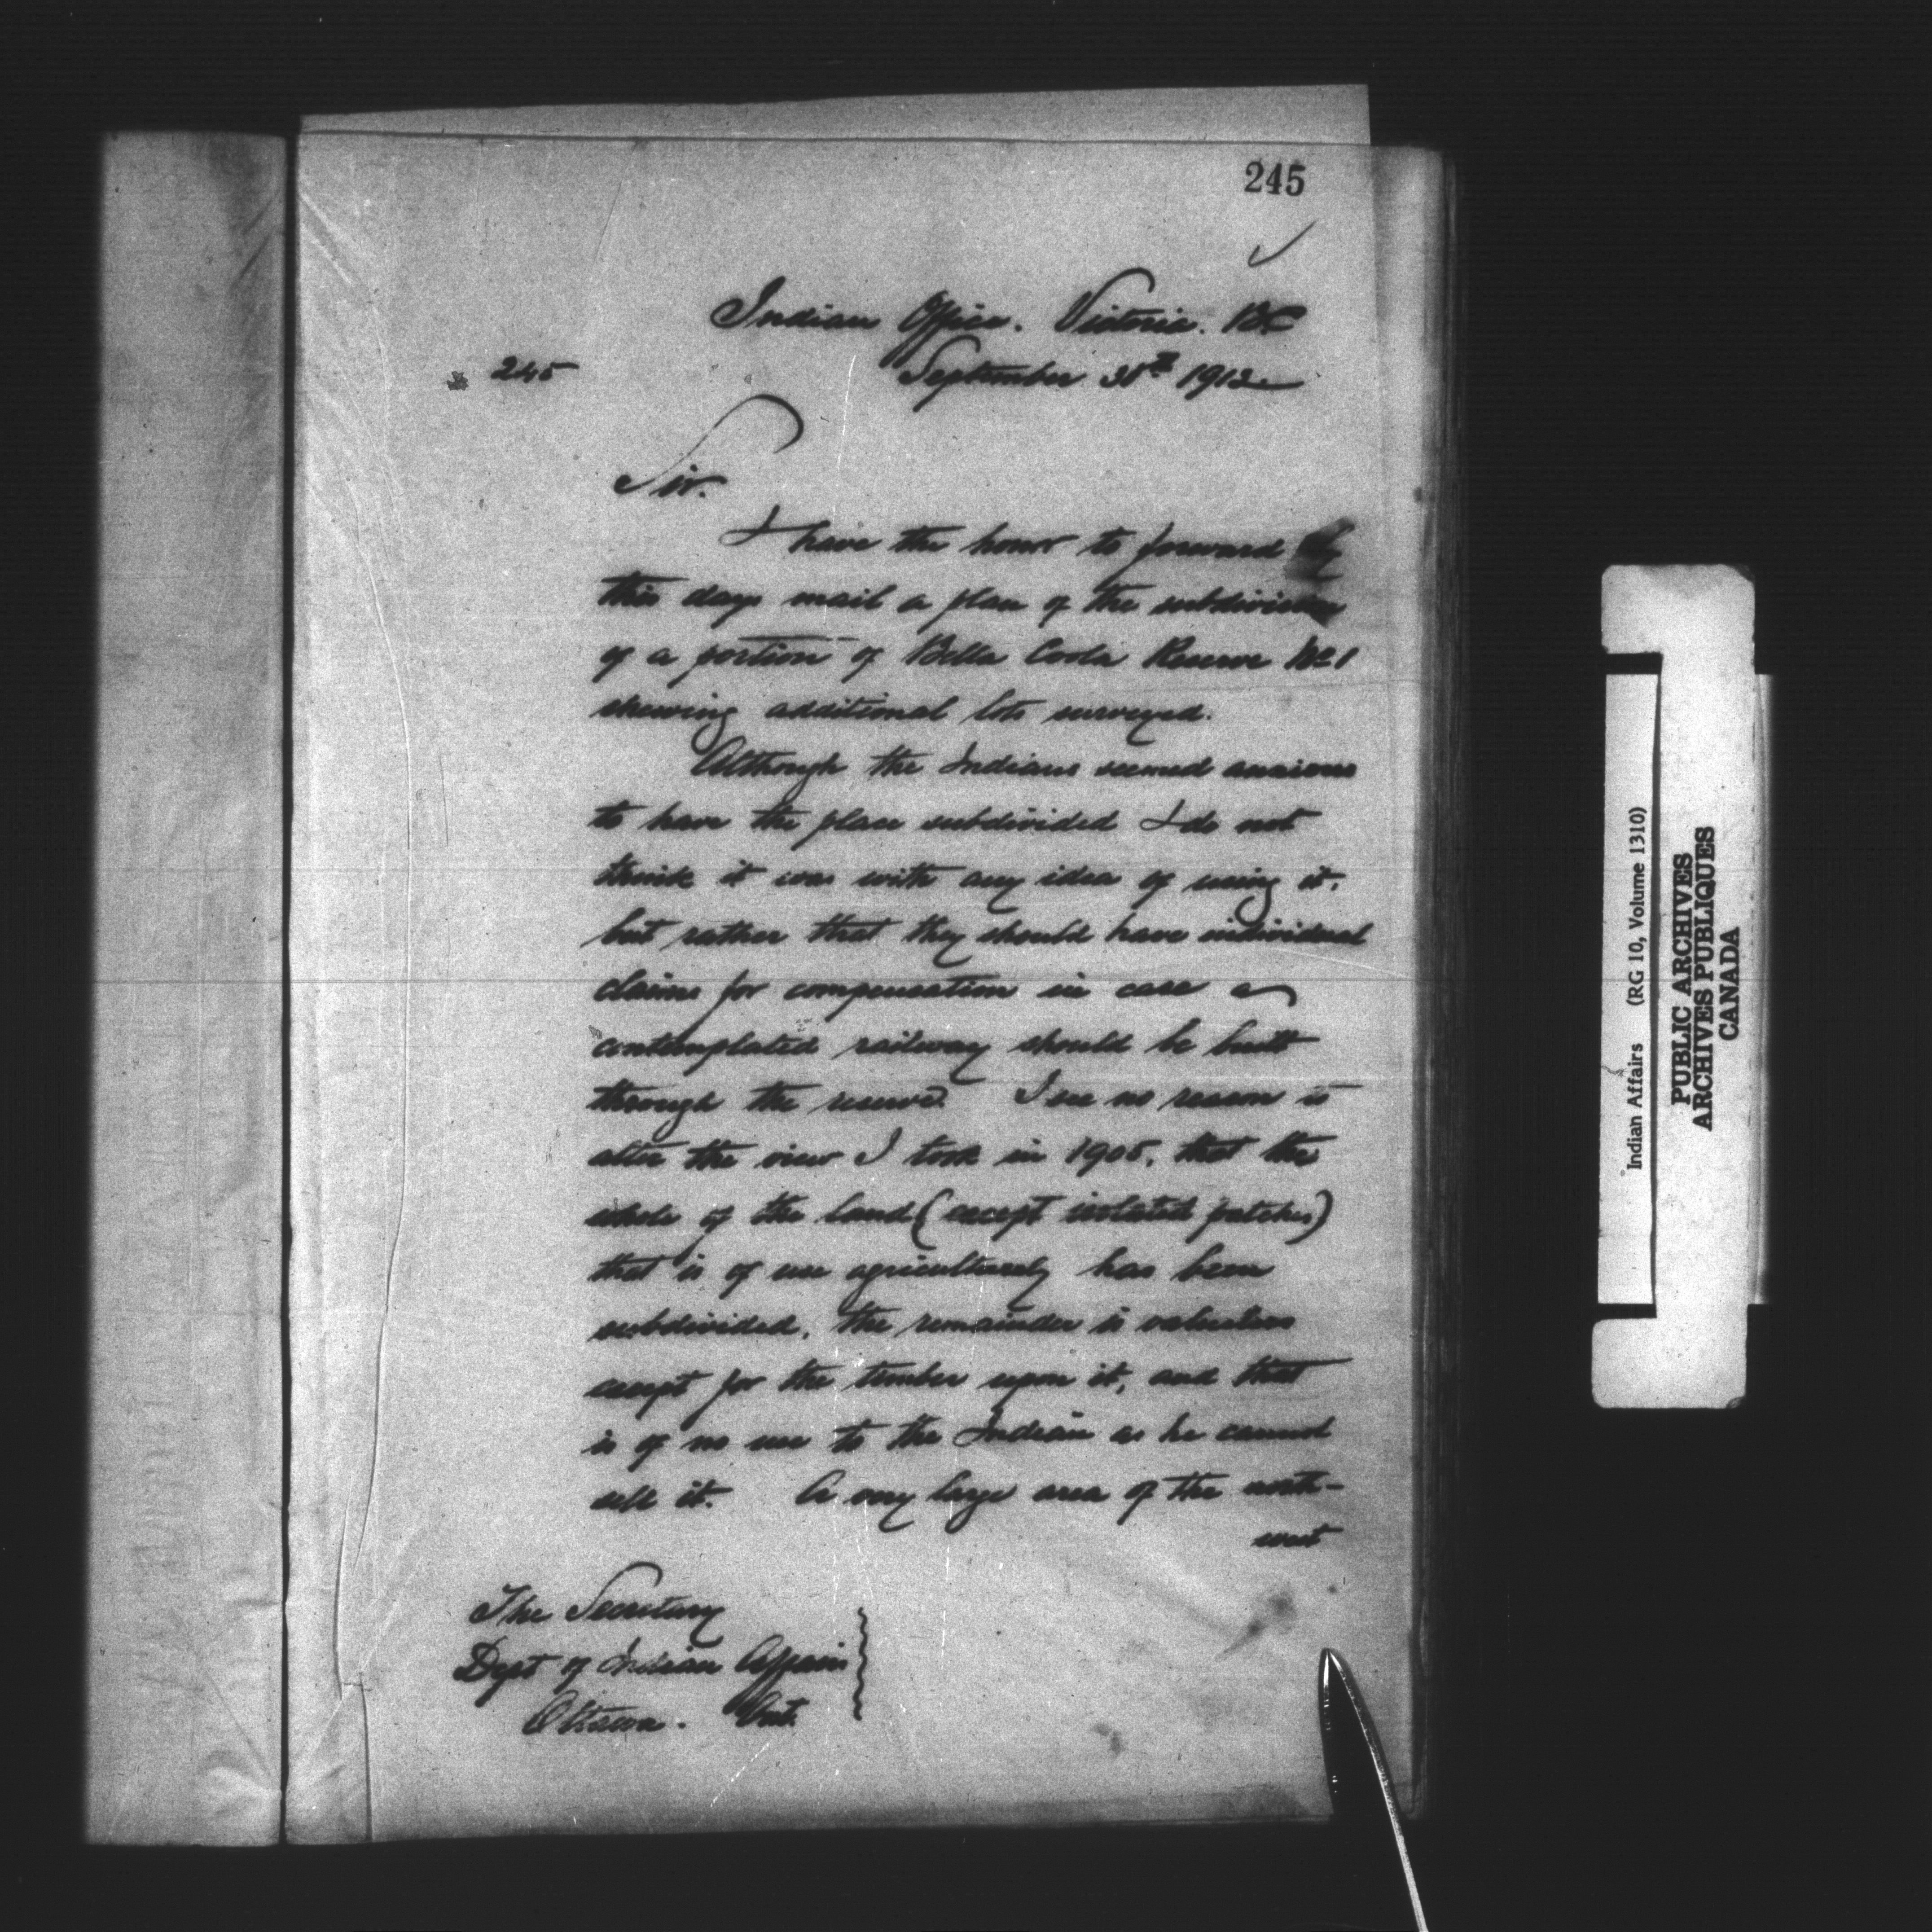 245
Indian Office. Victoria. BC
245
September 30th 1912
Sir.
I have the honor to forward by
this days mail a plan of the subdivision
of a portion of Bella Coola Reserve No 1
shewing additional lots surveyed.
Although the Indians seemed anxious
to have the place subdivided I do not
think it was with any idea of using it.
but rather that they should have individual
claims for compensation in case a
contemplated railway should be built
through the reserve. I see no reason to
alter the view I took in 1905, that the
whole of the land (except isolated patches)
that is of use agriculturely has been
subdivided, the remainder is valueless
except for the timber upon it, and that
is of no use to the Indian as he cannot
sell it. A very large area of the north-
west
The Secretary
Dept of Indian Affairs
Ottawa. Ont.
Indian Affairs (RG 10, Volume 1310)
PUBLIC ARCHIVES
ARCHIVES PUBLIQUES
CANADA